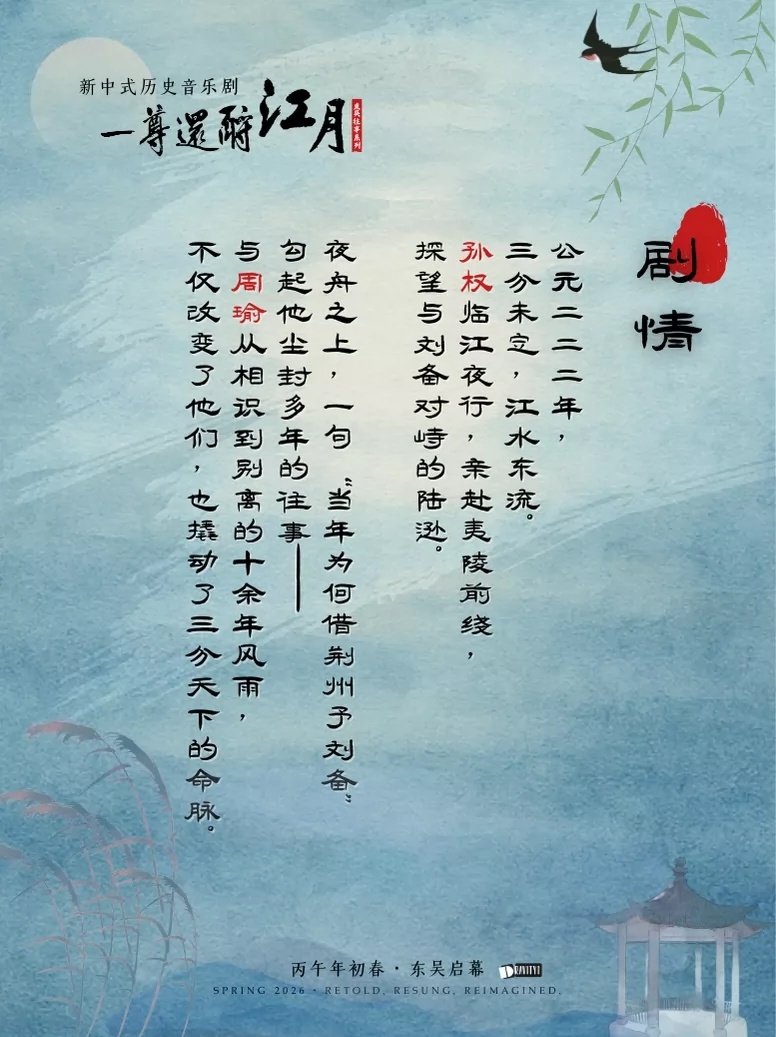 新中式历史音乐剧
一尊還酹江月
剧情
公元二二二年，
三分未定，江水东流。
孙权临江夜行，亲赴夷陵前线，
探望与刘备对峙的陆逊。
夜舟之上，一句“当年为何借荆州予刘备”
勾起他尘封多年的往事——
与周瑜从相识到别离的十余年风雨，
不仅改变了他们，也撬动了三分天下的命脉。
丙午年初春·东吴启幕
SPRING 2026 · RETOLD, RESUNG, REIMAGINED.